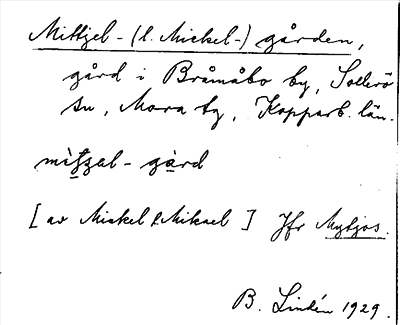 Mittjel- (l. Mickel-) gården,
gård i Bråmåbo by, Sollerö
sn, Mora tg, Kopparb. län.
gård
[av Mickel l. Mikael] Jfr Mytjos.
B. Lindén 1929.